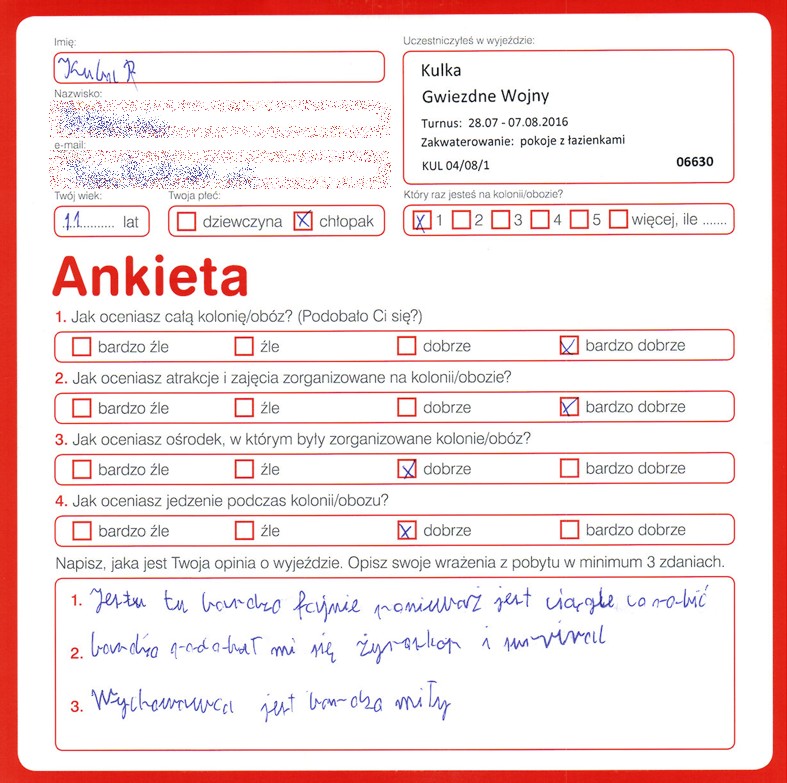 Imię:
Kuba R
Nazwisko:
e-mail:
Twój wiek:
11 lat
Twoja płeć:
dziewczyna chłopak
Uczestniczyłeś w wyjeździe:
Kulka
Gwiezdne Wojny
Turnus: 28.07 - 07.08.2016
Zakwaterowanie: pokoje z łazienkami
KUL 04/08/1 06630
Który raz jesteś na kolonii/obozie?
1 2 3 4 5 więcej, ile .......
Ankieta
1. Jak oceniasz całą kolonię/obóz? (Podobało Ci się?)
bardzo źle źle dobrze bardzo dobrze
2. Jak oceniasz atrakcje i zajęcia zorganizowane na kolonii/obozie?
bardzo źle źle dobrze bardzo dobrze
3. Jak oceniasz ośrodek, w którym były zorganizowane kolonie/obóz?
bardzo źle źle dobrze bardzo dobrze
4. Jak oceniasz jedzenie podczas kolonii/obozu?
bardzo źle źle dobrze bardzo dobrze
Napisz, jaka jest Twoja opinia o wyjeździe. Opisz swoje wrażenia z pobytu w minimum 3 zdaniach.
1. Jest tu bardzo fajnie poniewarz jest ciągle co robić
2. bardzo podobał mi się żyroskop i survival
3. Wychowawca jest bardzo miły